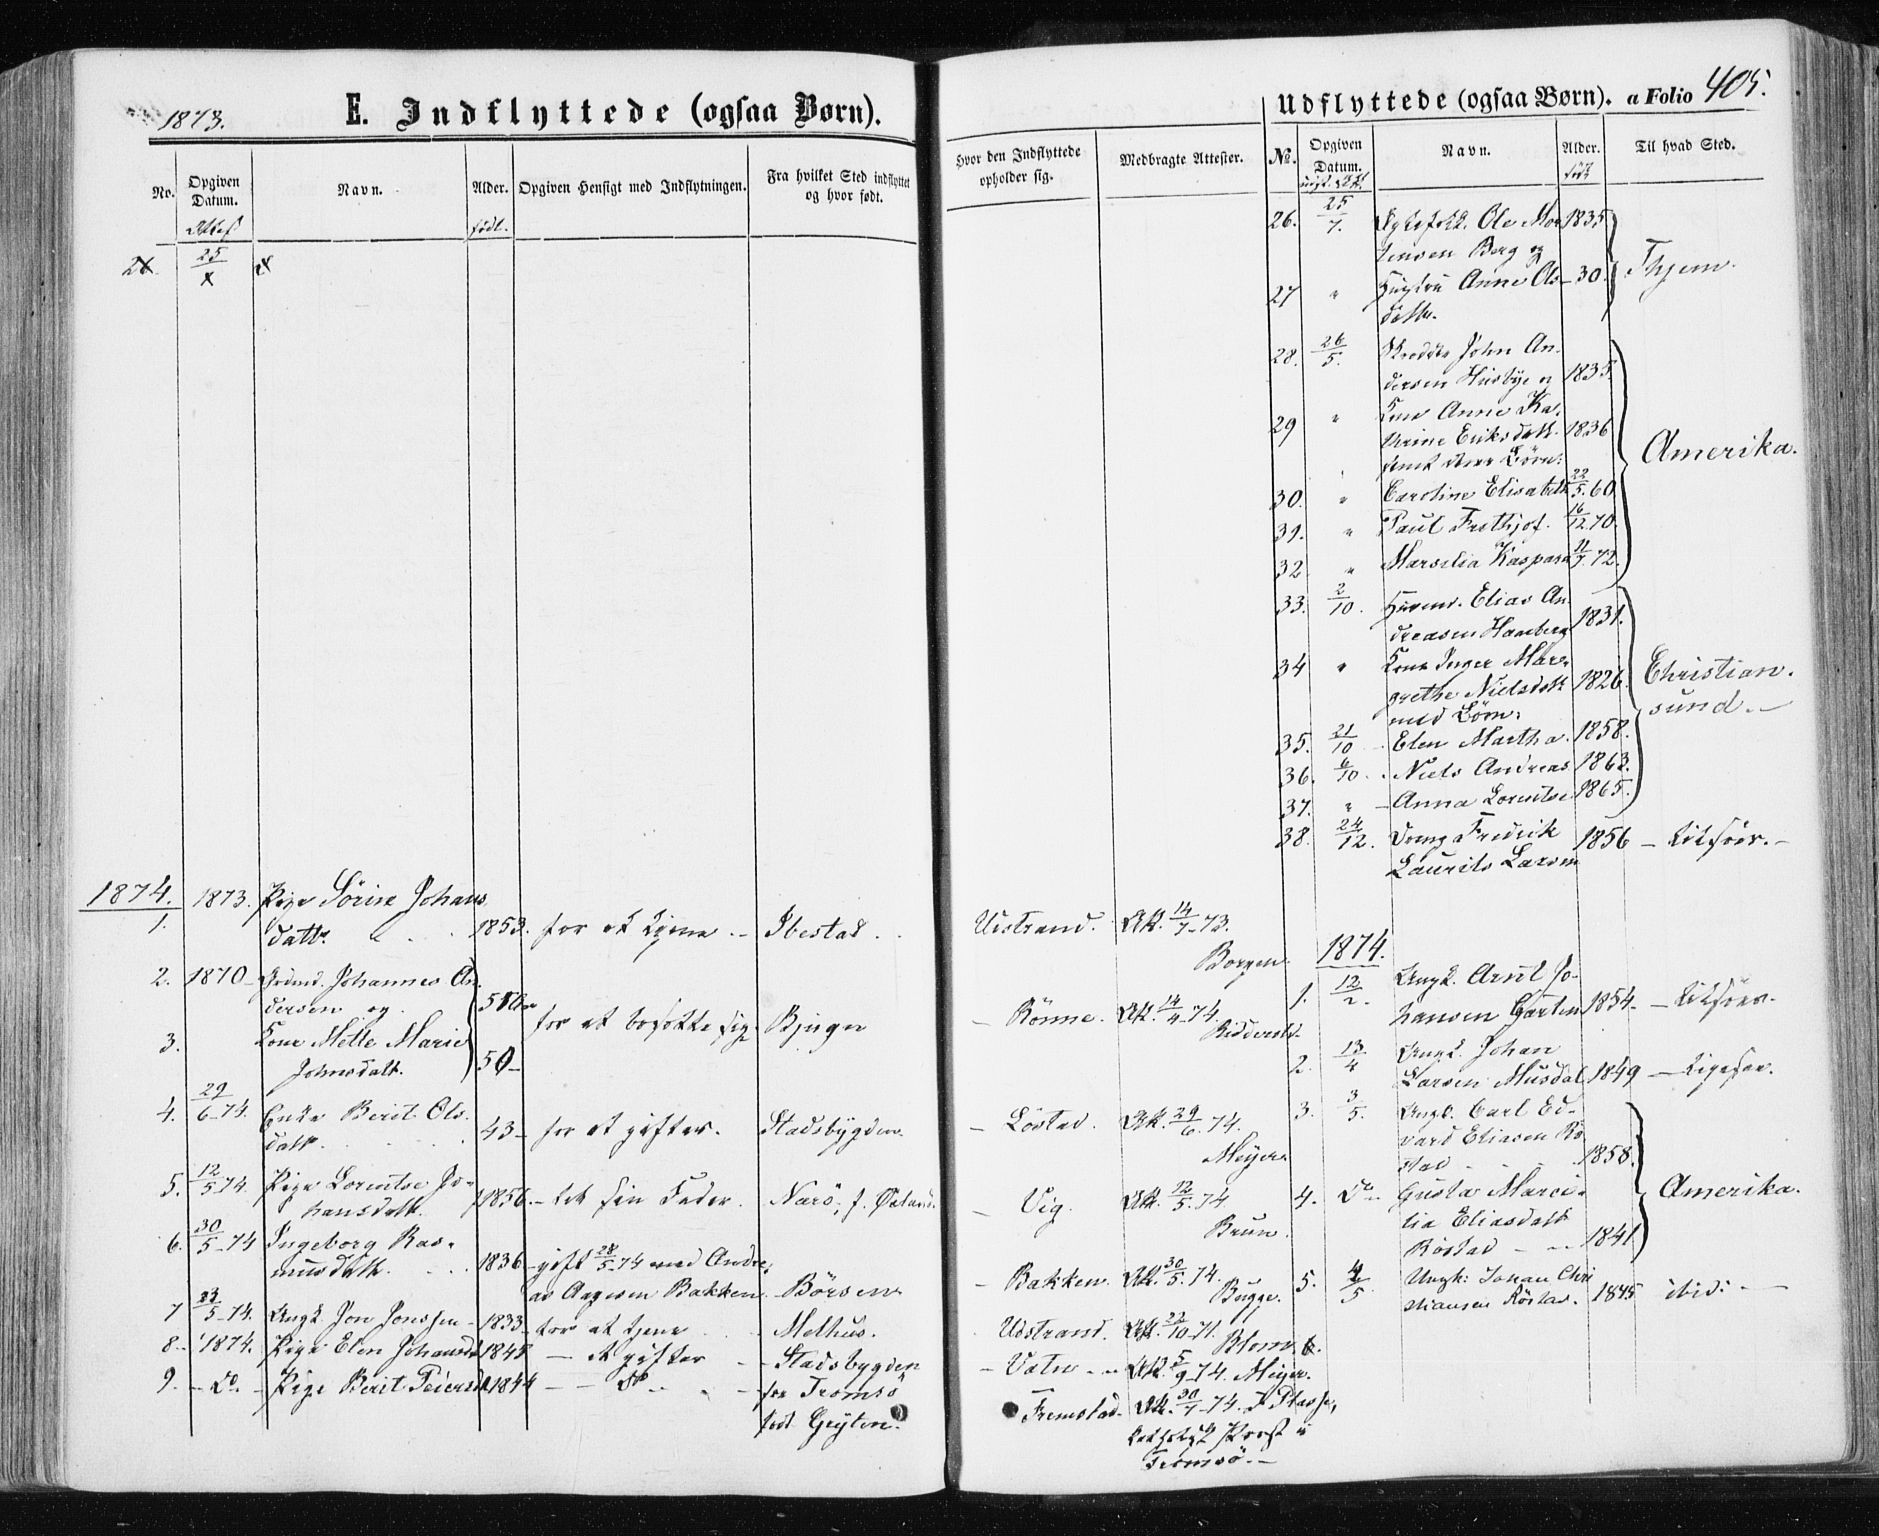 1873.
E. Indflyttede (ogsaa Børn).
No.
Opgiven Datum.
Navn.
Alder.
Opgiven Hensigt med Indflytningen.
Fra hvilket Sted indflyttet og hvor født.
Attest
født.
25
1874.
1. 1873. Pige Sörine Johans
datt. 1853. for at tjene. – Ibestad.
2. 1870 – Johannes An
dersen og
for at bosætte sig. Bjugn
3. Kone Mette Marie 50 –
Johnsdatt.
4. 29/6-74. Enke Berit Ols
datt. 43 – for at giftes. Stadsbygden.
5. 12/5-74. Pige Lorentse Jo-
hansdatt. 1856. – til sin Fader. Narö, f.
6. 30/5-74 Ingeborg Ras-
musdatt. 1836 – gift 28/5-74 med Andre
as Aagesen Bakken – Börsen
7 23/5-74. Ungk. Jon Jonssen – 1833 – for at tjene – Melhus.
8. – 1874. Pige Elen Johansd. 1848 – at giftes – Stadsbygden
9. – Do. – Pige Berit 1844 – Do – fra Tromsö
født
Udflyttede (ogsaa Børn). a Folio 405.
Hvor den Indflyttede opholder sig.
Medbragte Attester.
No.
Opgiven Datum.
Navn.
Alder.
Til hvad Sted.
født
26. 25/7. Ole Mor 1835
tensen Berg og
27 " Hustru Anne Ols – 30. Thjem.
datter.
28. 26/5. John An-
dersen Husbye 1835.
29 " Kone Anne Ka-
thrine Eriksdatt. 1836 Amerika.
samt deres Börn:
30. " Caroline Elisabeth 22/5.60.
31. " Paul Frithjof. 16/12.70.
32. " Marselia Kaspara 11/7.72.
33. 2/10. Elias An
dreasen Hamberg 1831.
34 " Kone Inger Mar-
grethe Nielsdatt. 1826. Christian-
med Börn: sund. –
35. 21/10 – Elen Martha. 1858.
36. 6/10. Niels Andreas 1863.
37. " – Anna Lorentse 1865.
38. 24/12. Dreng Fredrik 1856 –
Laurits Larsen
Udstrand. Att. 14/7-73.
Borgen.
– Rönne. Att. 14/4-74.
– Löstad. Att. 29/6-74.
Meyer.
– Vig. Att. 12/5.74
Brun.
– Bakken. Att. 30/5.74.
Bugge.
Udstrand. Att. 22/10-71.
Blom.
– Vatn – Att. 5/9-74. Meyer.
Fremstad – Att. 30/7-74.
Prost i
Tromsö. –
1874.
1. 12/2. Ungk. Arnt Jo-
hansen Garten 1854 –
2. 13/4 Ungk. Johan
Larsen Musdal 1849 –
3. 3/5. Ungk. Carl Ed-
vard Eliasen Rö
stad 1858.
4. Do. Gusta Marci-
lia Eliasdatt. Amerika.
Röstad – 1841
5. 4/5 Ungk: Johan Chri
stiansen Röstad. 1845 ibid: –